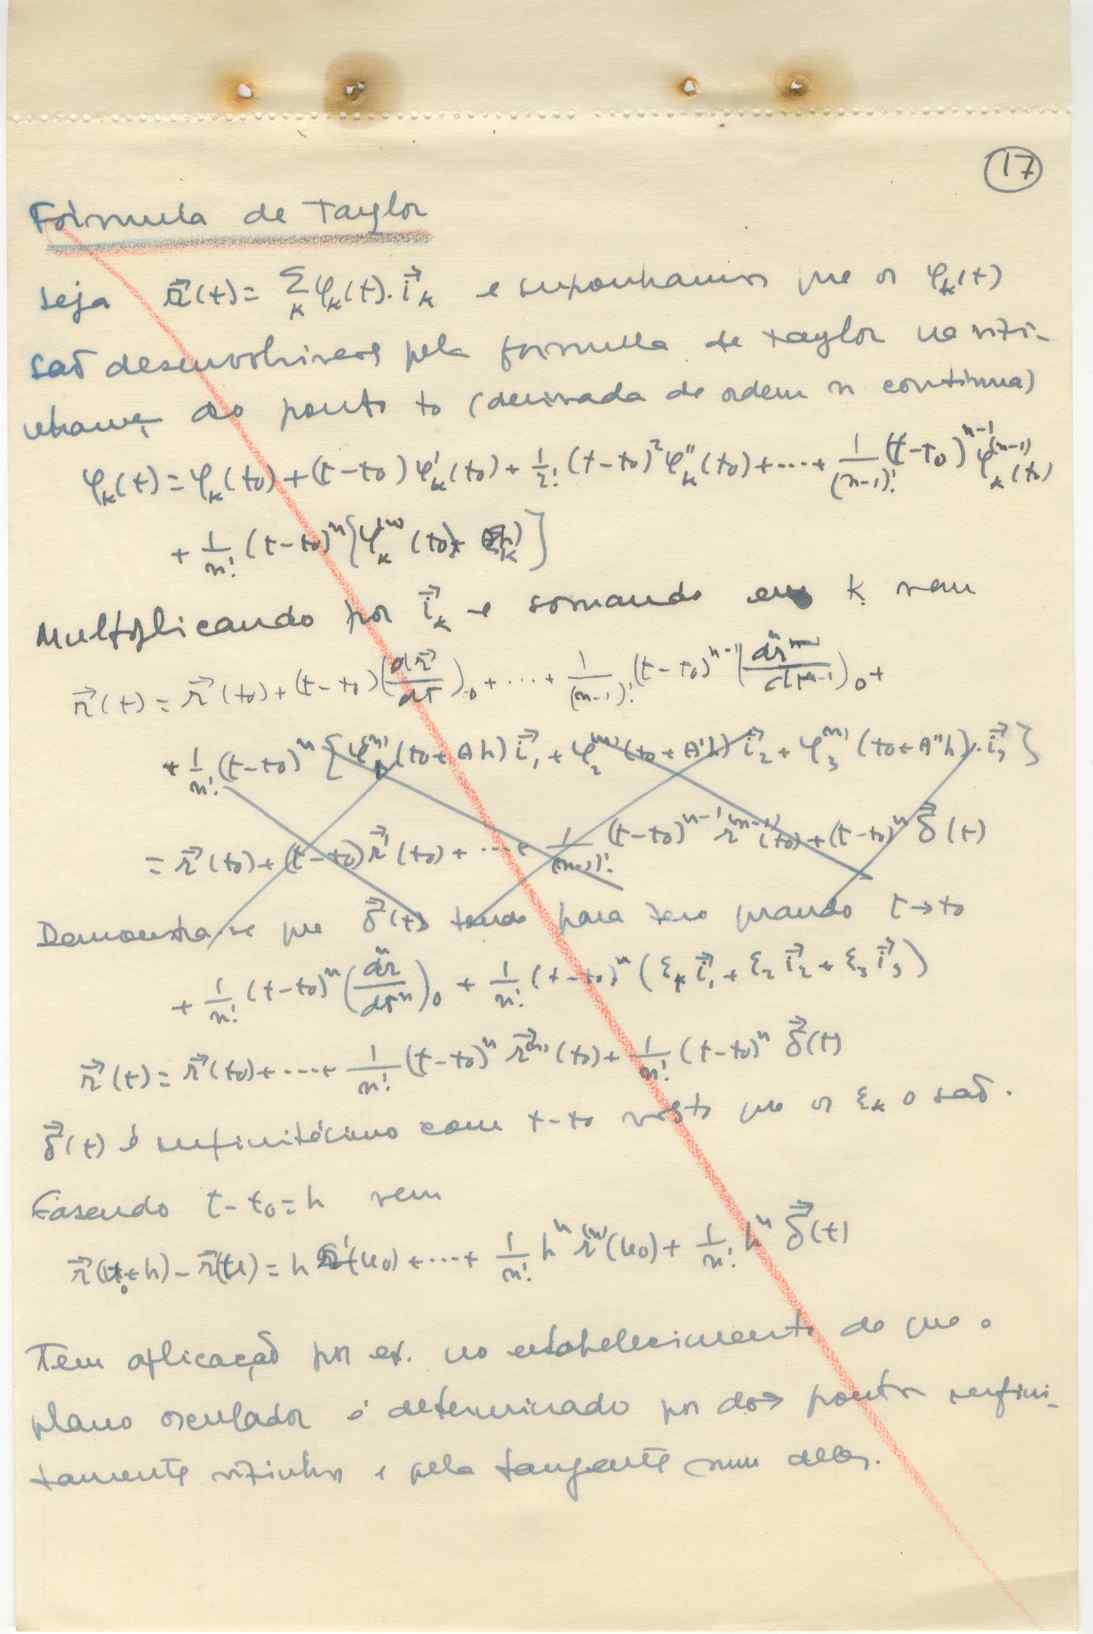 17
Fórmula de Taylor
Seja r⃗(t) = Σ_k φ_k(t). i⃗_k e suponhamos que os φ_k(t)
são desenvolviveis pela formula de Taylor na vizi-
nhança do ponto t₀ (derivada de ordem n continua)
φ_k(t) = φ_k(t₀) + (t-t₀) φ'_k(t₀) + 1/2! (t-t₀)² φ''_k(t₀) + .... + 1/(n-1)! (t-t₀)^{n-1} φ_k^{(n-1)}(t₀)
+ 1/n! (t-t₀)^n [φ_k^{(n)}(t₀) + ε_k]
Multiplicando por i⃗_k e somando em k vem
r⃗(t) = r⃗(t₀) + (t-t₀) (dr⃗/dt)₀ + ... + 1/(n-1)! (t-t₀)^{n-1} (d^{n-1}r/dt^{n-1})₀ +
+ 1/n! (t-t₀)^n [φ_1^{(n)}(t₀+θh) i⃗₁ + φ_2^{(n)}(t₀+θ'h) i⃗₂ + φ_3^{(n)}(t₀+θ''h). i⃗₃]
= r⃗(t₀) + (t-t₀) r⃗'(t₀) + ... + 1/(n-1)! (t-t₀)^{n-1} r^{(n-1)}(t₀) + (t-t₀)^n δ⃗(t)
Demonstra-se que δ⃗(t) tende para zero quando t→t₀
+ 1/n! (t-t₀)^n (d^n r/dt^n)₀ + 1/n! (t-t₀)^n (ε₁ i⃗₁ + ε₂ i⃗₂ + ε₃ i⃗₃)
r⃗(t) = r⃗(t₀) + .... + 1/n! (t-t₀)^n r⃗^{(n)}(t₀) + 1/n! (t-t₀)^n δ⃗(t)
δ⃗(t) é infinitésimo com t-t₀ visto que os ε_k o são.
Fasendo t-t₀ = h vem
r⃗(u₀+h) - r⃗(u) = h r'(u₀) + .... + 1/n! h^n r^{(n)}(u₀) + 1/n! h^n δ⃗(t)
Tem aplicação por ex. no estabelecimento de que o
plano osculador é determinado por dois pontos infini-
tamente vizinhos e pela tangente num deles.